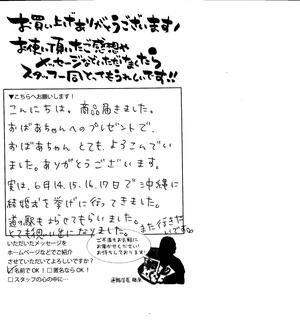 お買い上げありがとうございます!
お使い頂いたご感想や
メッセージなどいただけましたら
スタッフ一同とってもうれしいです!!
▼こちらへお願いします!
こんにちは。商品届きました。
おばあちゃんへのプレゼントで、
おばあちゃんとても、よろこんでい
ました。ありがとうございます。
実は、6月14.15.16.17日で沖縄に
結婚式を挙げに行ってきました。
道の駅もよらせてもらいました。
とても良い思い出になりました。また行きた
いです。
いただいたメッセージを
ホームページなどでご紹介
させていただいてよろしいですか?
☑名前でOK! □匿名ならOK!
□スタッフの心の中に…
ご不満もお気軽に
お書きください!
お待ちしております!